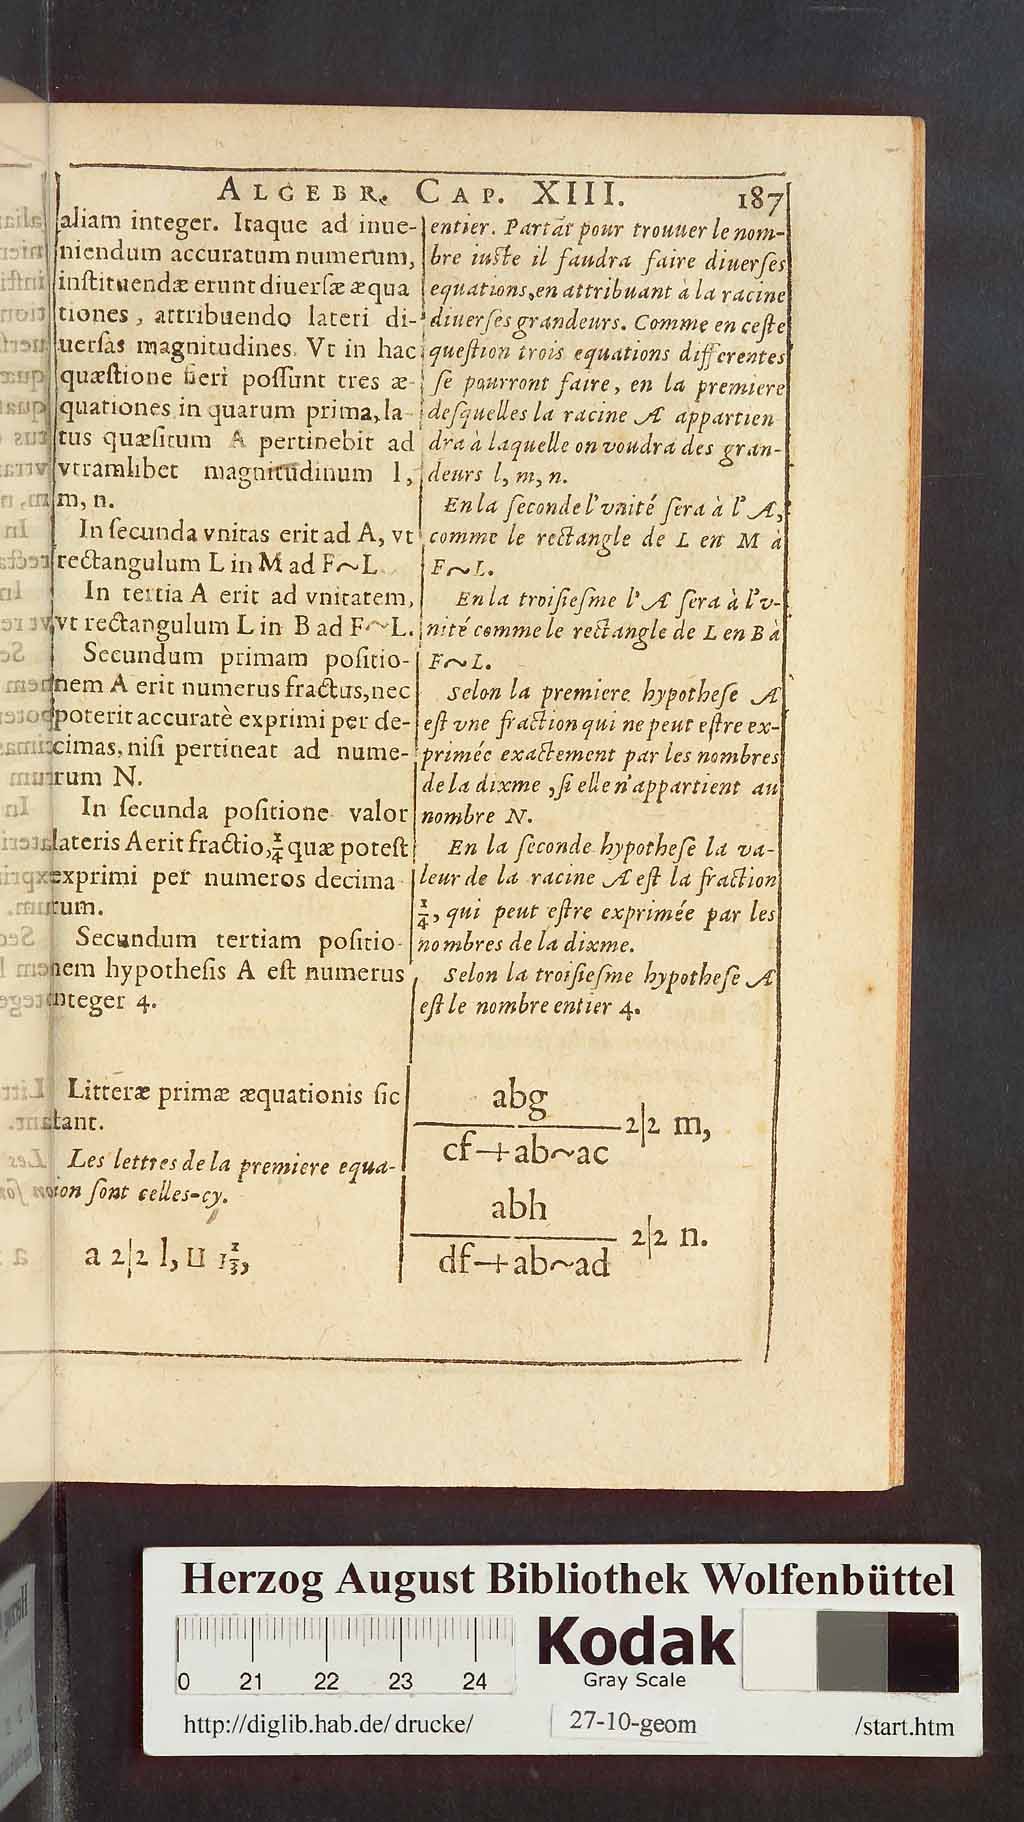 ALGEBR. CAP. XIII. 187
aliam integer. Itaque ad inue-
niendum accuratum numerum,
inſtituendæ erunt diuerſæ æqua
tiones, attribuendo lateri di-
uerſas magnitudines. Vt in hac
quæſtione fieri poſſunt tres æ-
quationes in quarum prima, la-
tus quæſitum A pertinebit ad
vtramlibet magnitudinum l,
m, n.
In ſecunda vnitas erit ad A, vt
rectangulum L in M ad F~L.
In tertia A erit ad vnitatem,
vt rectangulum L in B ad F~L.
Secundum primam poſitio-
nem A erit numerus fractus, nec
poterit accuratè exprimi per de-
cimas, niſi pertineat ad nume-
rum N.
In ſecunda poſitione valor
lateris A erit fractio, 1/4 quæ poteſt
exprimi per numeros decima
rum.
Secundum tertiam poſitio-
nem hypotheſis A eſt numerus
integer 4.
entier. Partāt pour trouuer le nom-
bre iuſte il faudra faire diuerſes
equations, en attribuant à la racine
diuerſes grandeurs. Comme en ceſte
queſtion trois equations differentes
ſe pourront faire, en la premiere
deſquelles la racine A appartien
dra à laquelle on voudra des gran-
deurs l, m, n.
En la ſeconde l'vnité ſera à l'A,
comme le rectangle de L en M à
F~L.
En la troiſieſme l'A ſera à l'v-
nité comme le rectangle de L en B à
F~L.
Selon la premiere hypotheſe A
eſt vne fraction qui ne peut eſtre ex-
primée exactement par les nombres
de la dixme, ſi elle n'appartient au
nombre N.
En la ſeconde hypotheſe la va-
leur de la racine A eſt la fraction
1/4, qui peut eſtre exprimée par les
nombres de la dixme.
Selon la troiſieſme hypotheſe A
eſt le nombre entier 4.
Litteræ primæ æquationis ſic
ſtant.
Les lettres de la premiere equa-
tion ſont celles-cy.
a 2|2 l, ⊔ 1 2/3,
abg
cf+ab~ac 2|2 m,
abh
df+ab~ad 2|2 n.
Herzog August Bibliothek Wolfenbüttel
0 21 22 23 24
Kodak
Gray Scale
http://diglib.hab.de/drucke/ 27-10-geom /start.htm